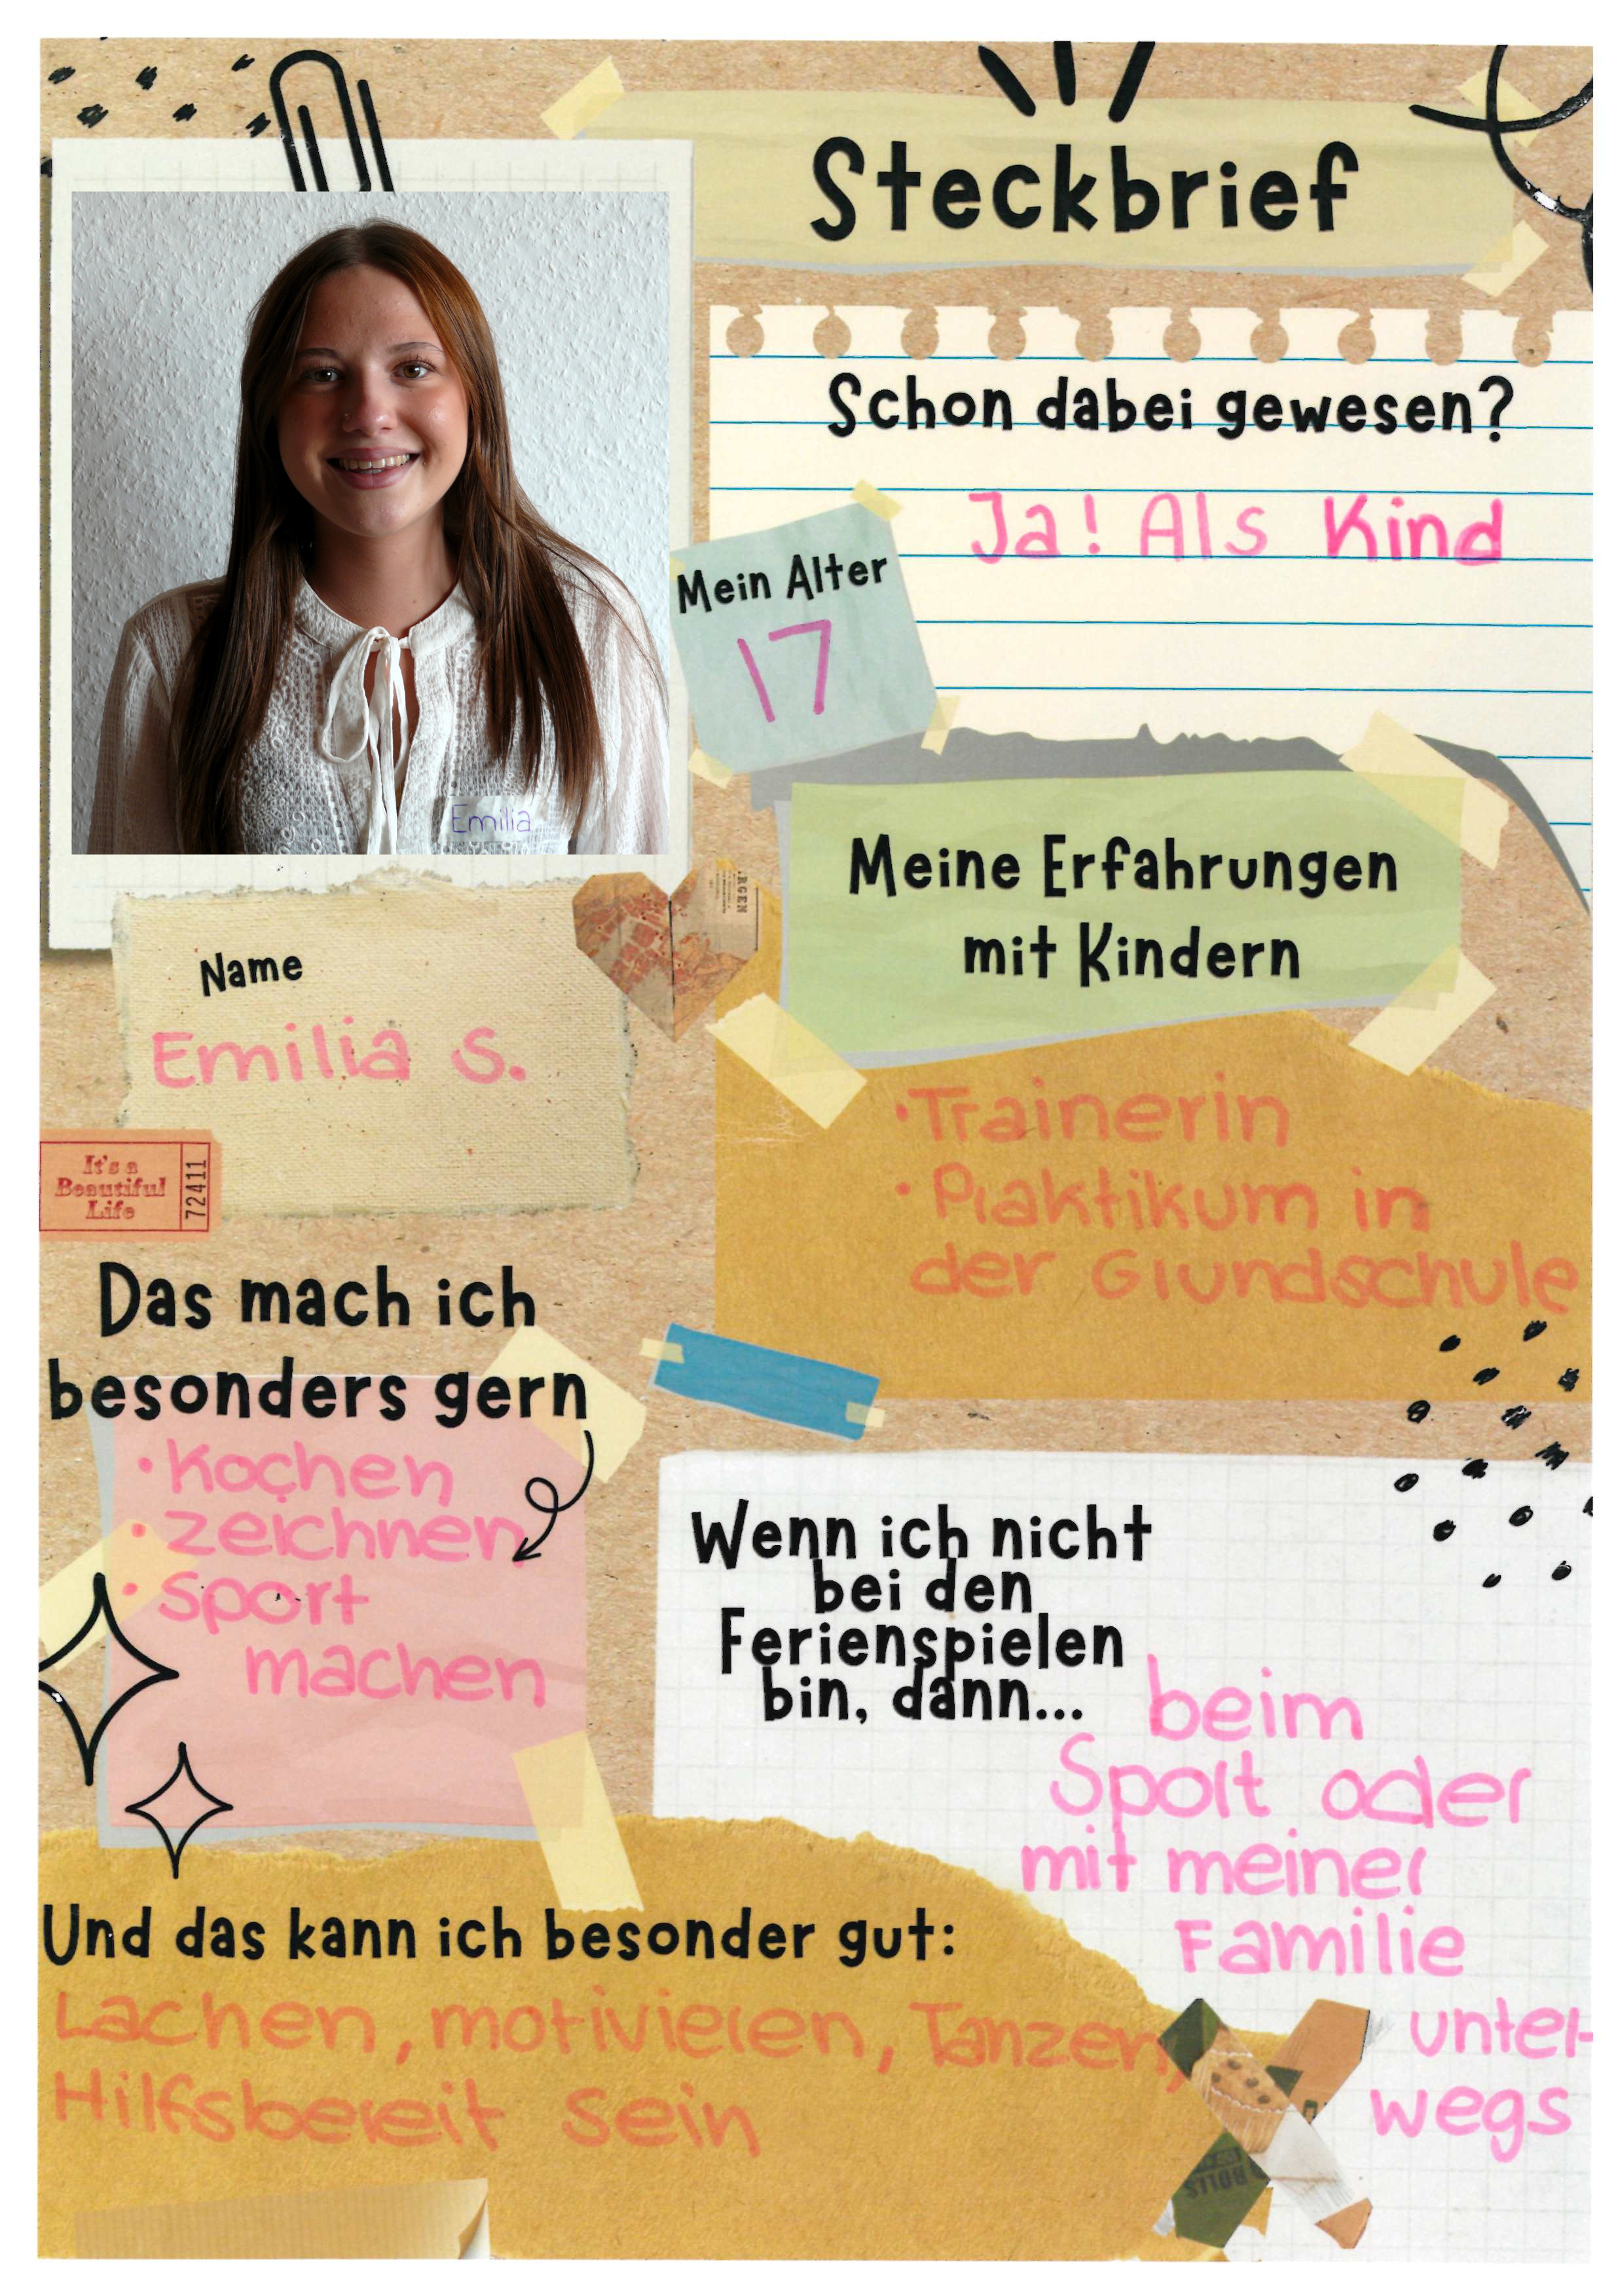 Steckbrief
Schon dabei gewesen?
Ja! Als Kind
Mein Alter
17
Emilia
Name
Emilia S.
Meine Erfahrungen
mit Kindern
• Trainerin
• Praktikum in
der Grundschule
It's a
Beautiful
Life
72411
Das mach ich
besonders gern
• Kochen
• zeichnen
• Sport
machen
Wenn ich nicht
bei den
Ferienspielen
bin, dann...
beim
Sport oder
mit meiner
Familie
unter-
wegs
Und das kann ich besonder gut:
Lachen, motivieren, Tanzen,
Hilfsbereit sein
ROLLS